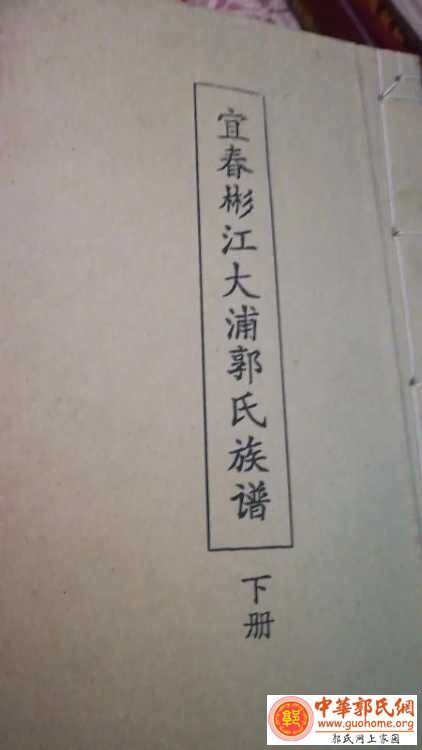 宜春彬江大浦郭氏族谱
下册
中華郭氏網
www.guohome.org
郭氏网上家园